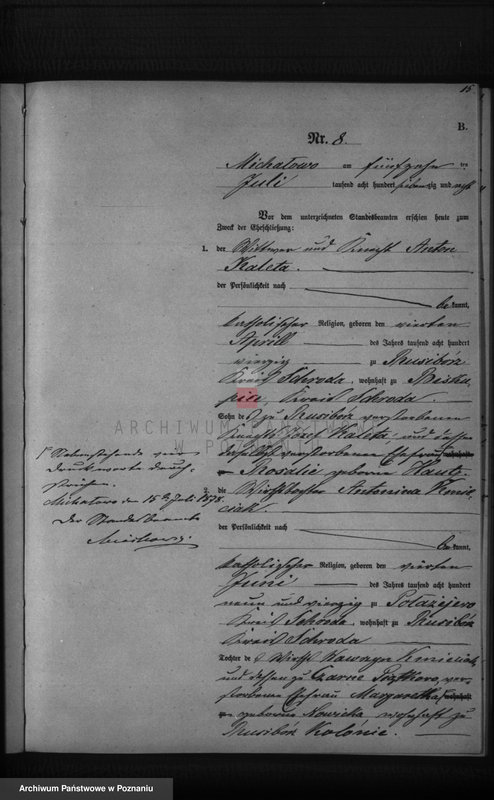 15
B.
Nr. 8.
Michalowo am fünfzehn ten
Juli tausend acht hundert siebenzig und acht
Vor dem unterzeichneten Standesbeamten erschien heute zum
Zweck der Eheschließung:
1. der Wittwer und Knecht Anton
Kaleta.
der Persönlichkeit nach
be kannt,
katholischer Religion, geboren den vierten
April des Jahres tausend acht hundert
vierzig zu Rusiborz
Kreis Schroda, wohnhaft zu Bisku-
pice, Kreis Schroda.
Sohn des zu Rusiborz verstorbenen
Knechts Kaleta und dessen
daselbst verstorbenen Ehefrau wohnhaft
Rosalie geborene
2. die Wirthstochter Antonina Kmie-
ciak
der Persönlichkeit nach
be kannt,
katholischer Religion, geboren den vierten
Juni des Jahres tausend acht hundert
neun und vierzig zu Polazejewo
Kreis Schroda, wohnhaft zu Rusiborz
Kreis Schroda
Tochter des Wirth Kmieciak
und dessen zu Czarne Piątkowo, ver-
storbene Ehefrau Margaretha wohnhaft
geborene Nowicka wohnhaft zu
Rusiborz Kolonie.
Nebenstehende vier
Druckworte durch-
strichen.
Michalowo den 15 Juli 1878.
Der Standesbeamte
ARCHIWUM PAŃSTWOWE
W POZNANIU
Archiwum Państwowe w Poznaniu